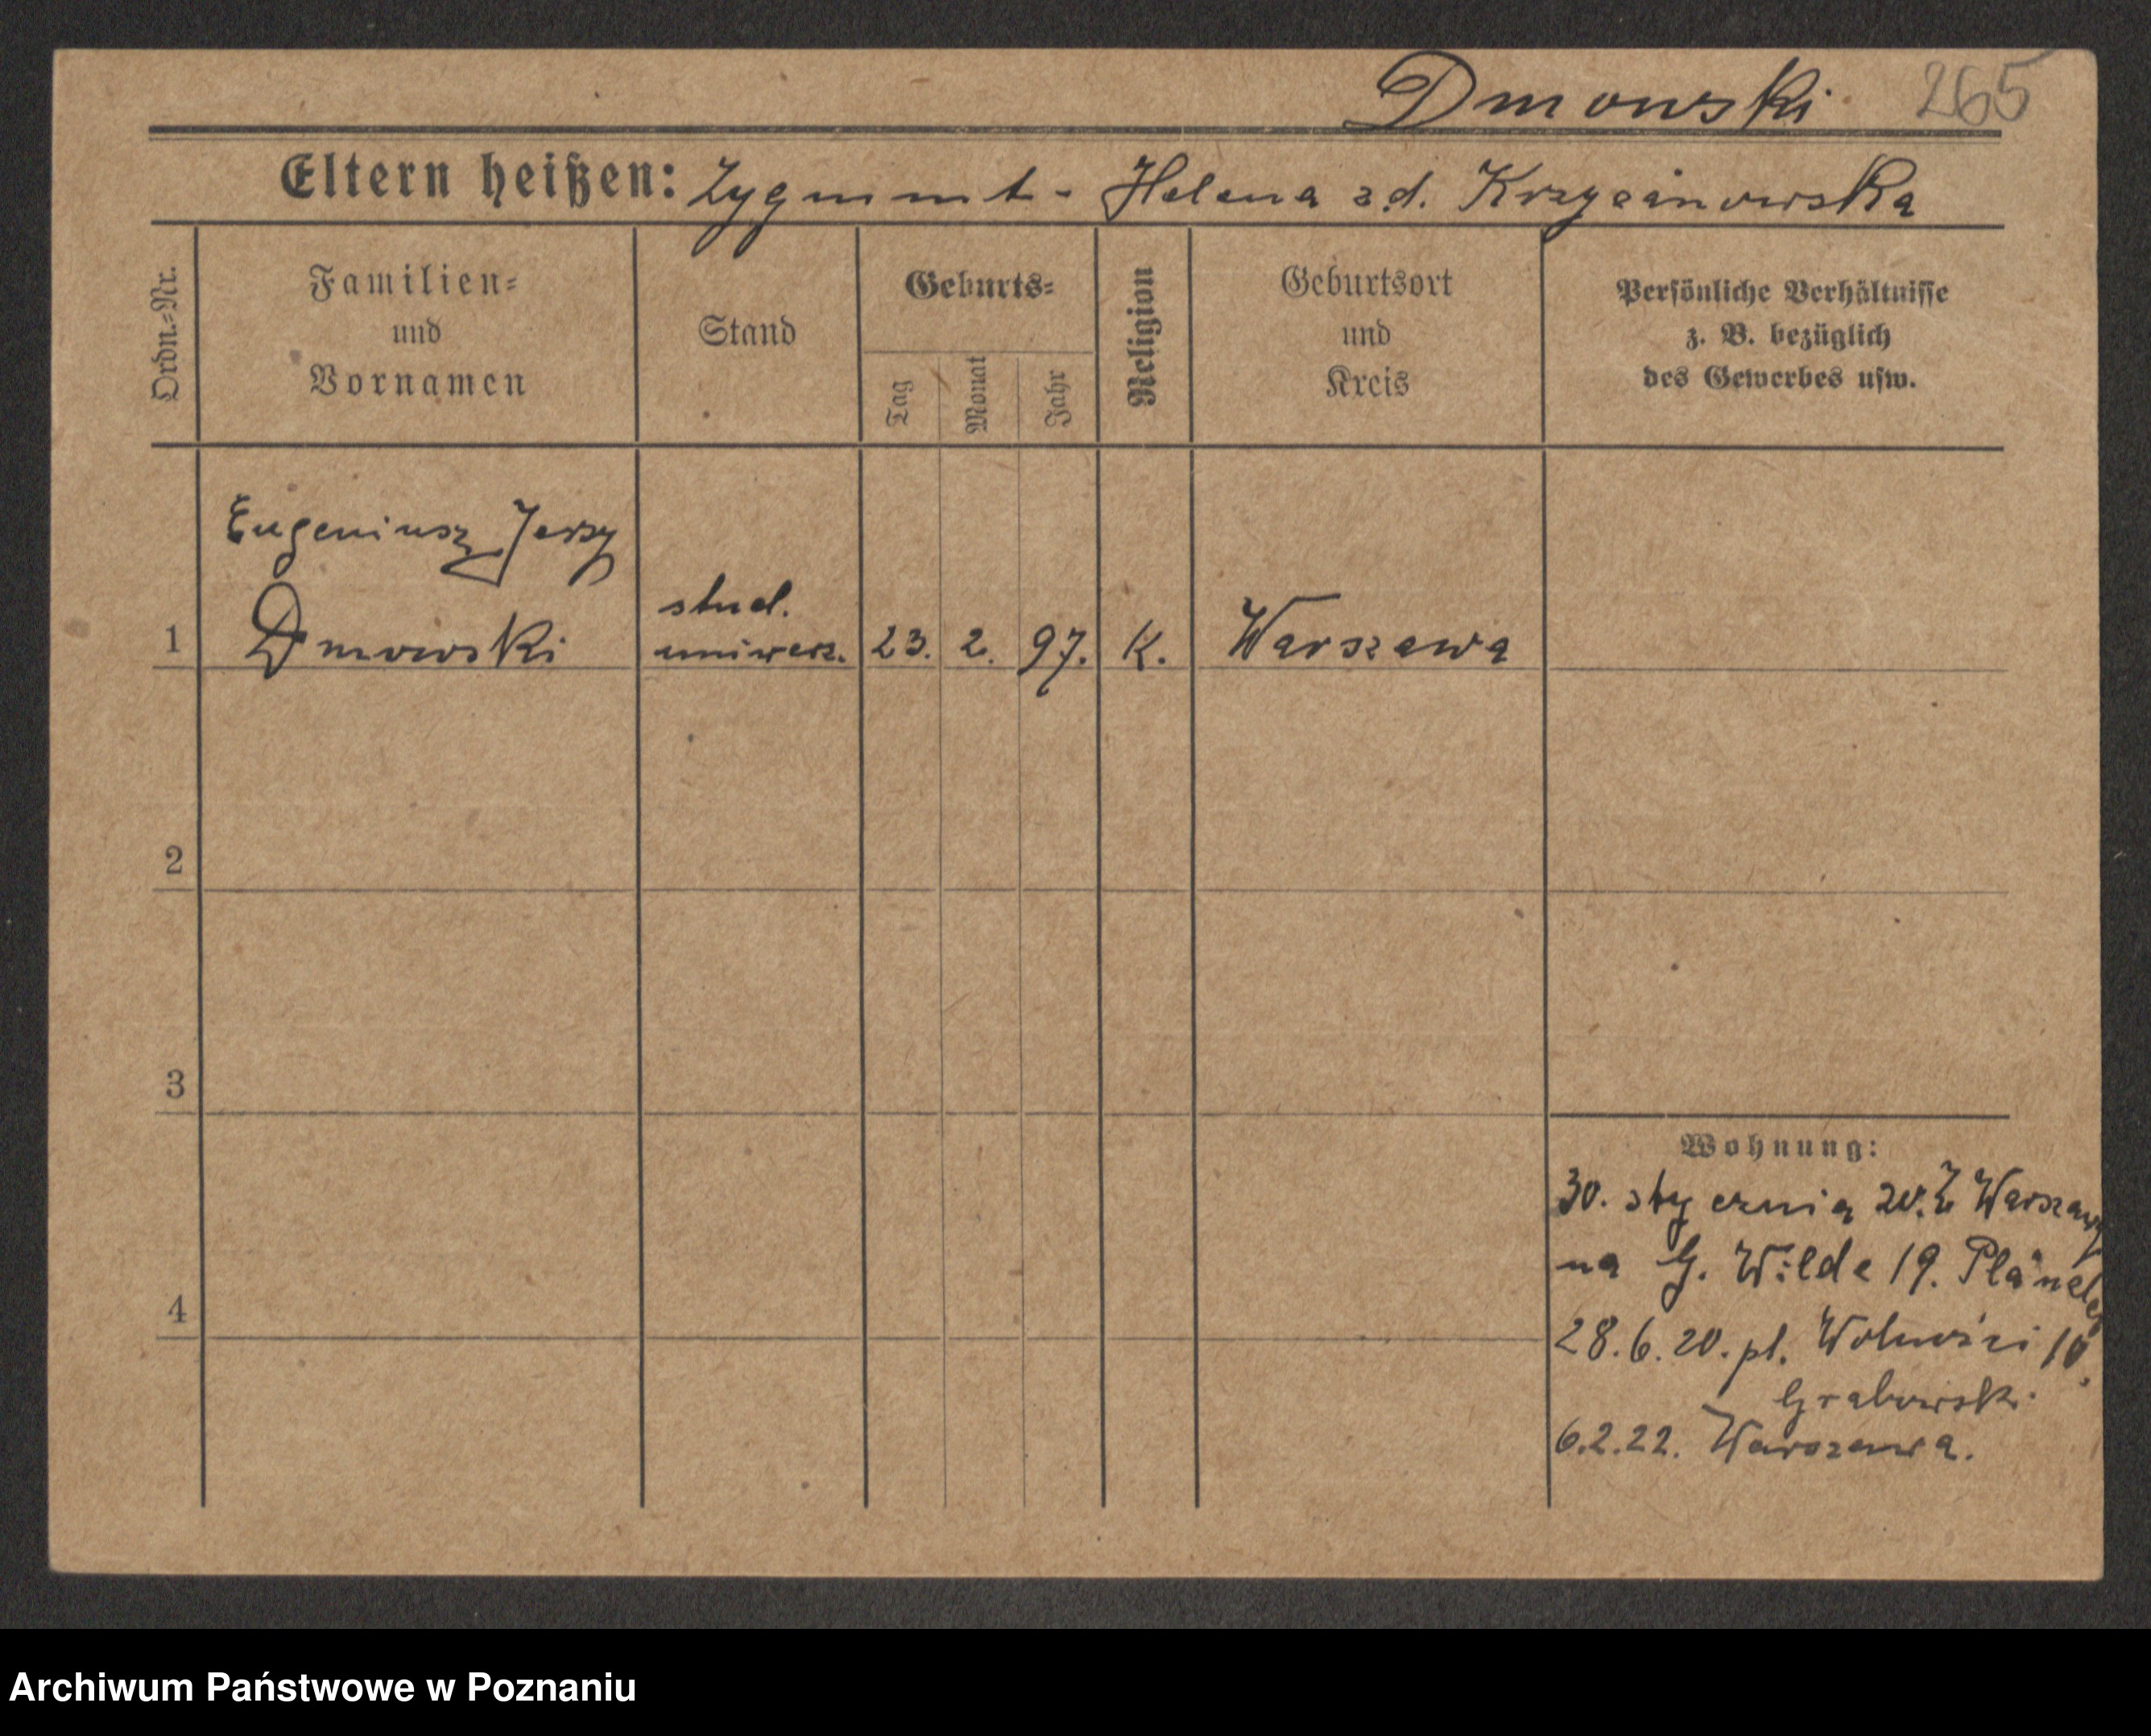 Dmowski 265
Eltern heißen: Zygmunt - Helena z d. Krzyżanowska
Ordn.-Nr.
Familien-
und
Vornamen
Stand
Geburts-
Tag
Monat
Jahr
Religion
Geburtsort
und
Kreis
Persönliche Verhältnisse
z. B. bezüglich
des Gewerbes usw.
Eugeniusz Jerzy
1 Dmowski stud. uniwers. 23. 2. 97. K. Warszawa
2
3
4
Wohnung:
30. stycznia 20. Z Warszawy
na G. Wilde 19.
28.6.20. pl. Wolności 10.
Grabowski
6.2.22. Warszawa.
Archiwum Państwowe w Poznaniu